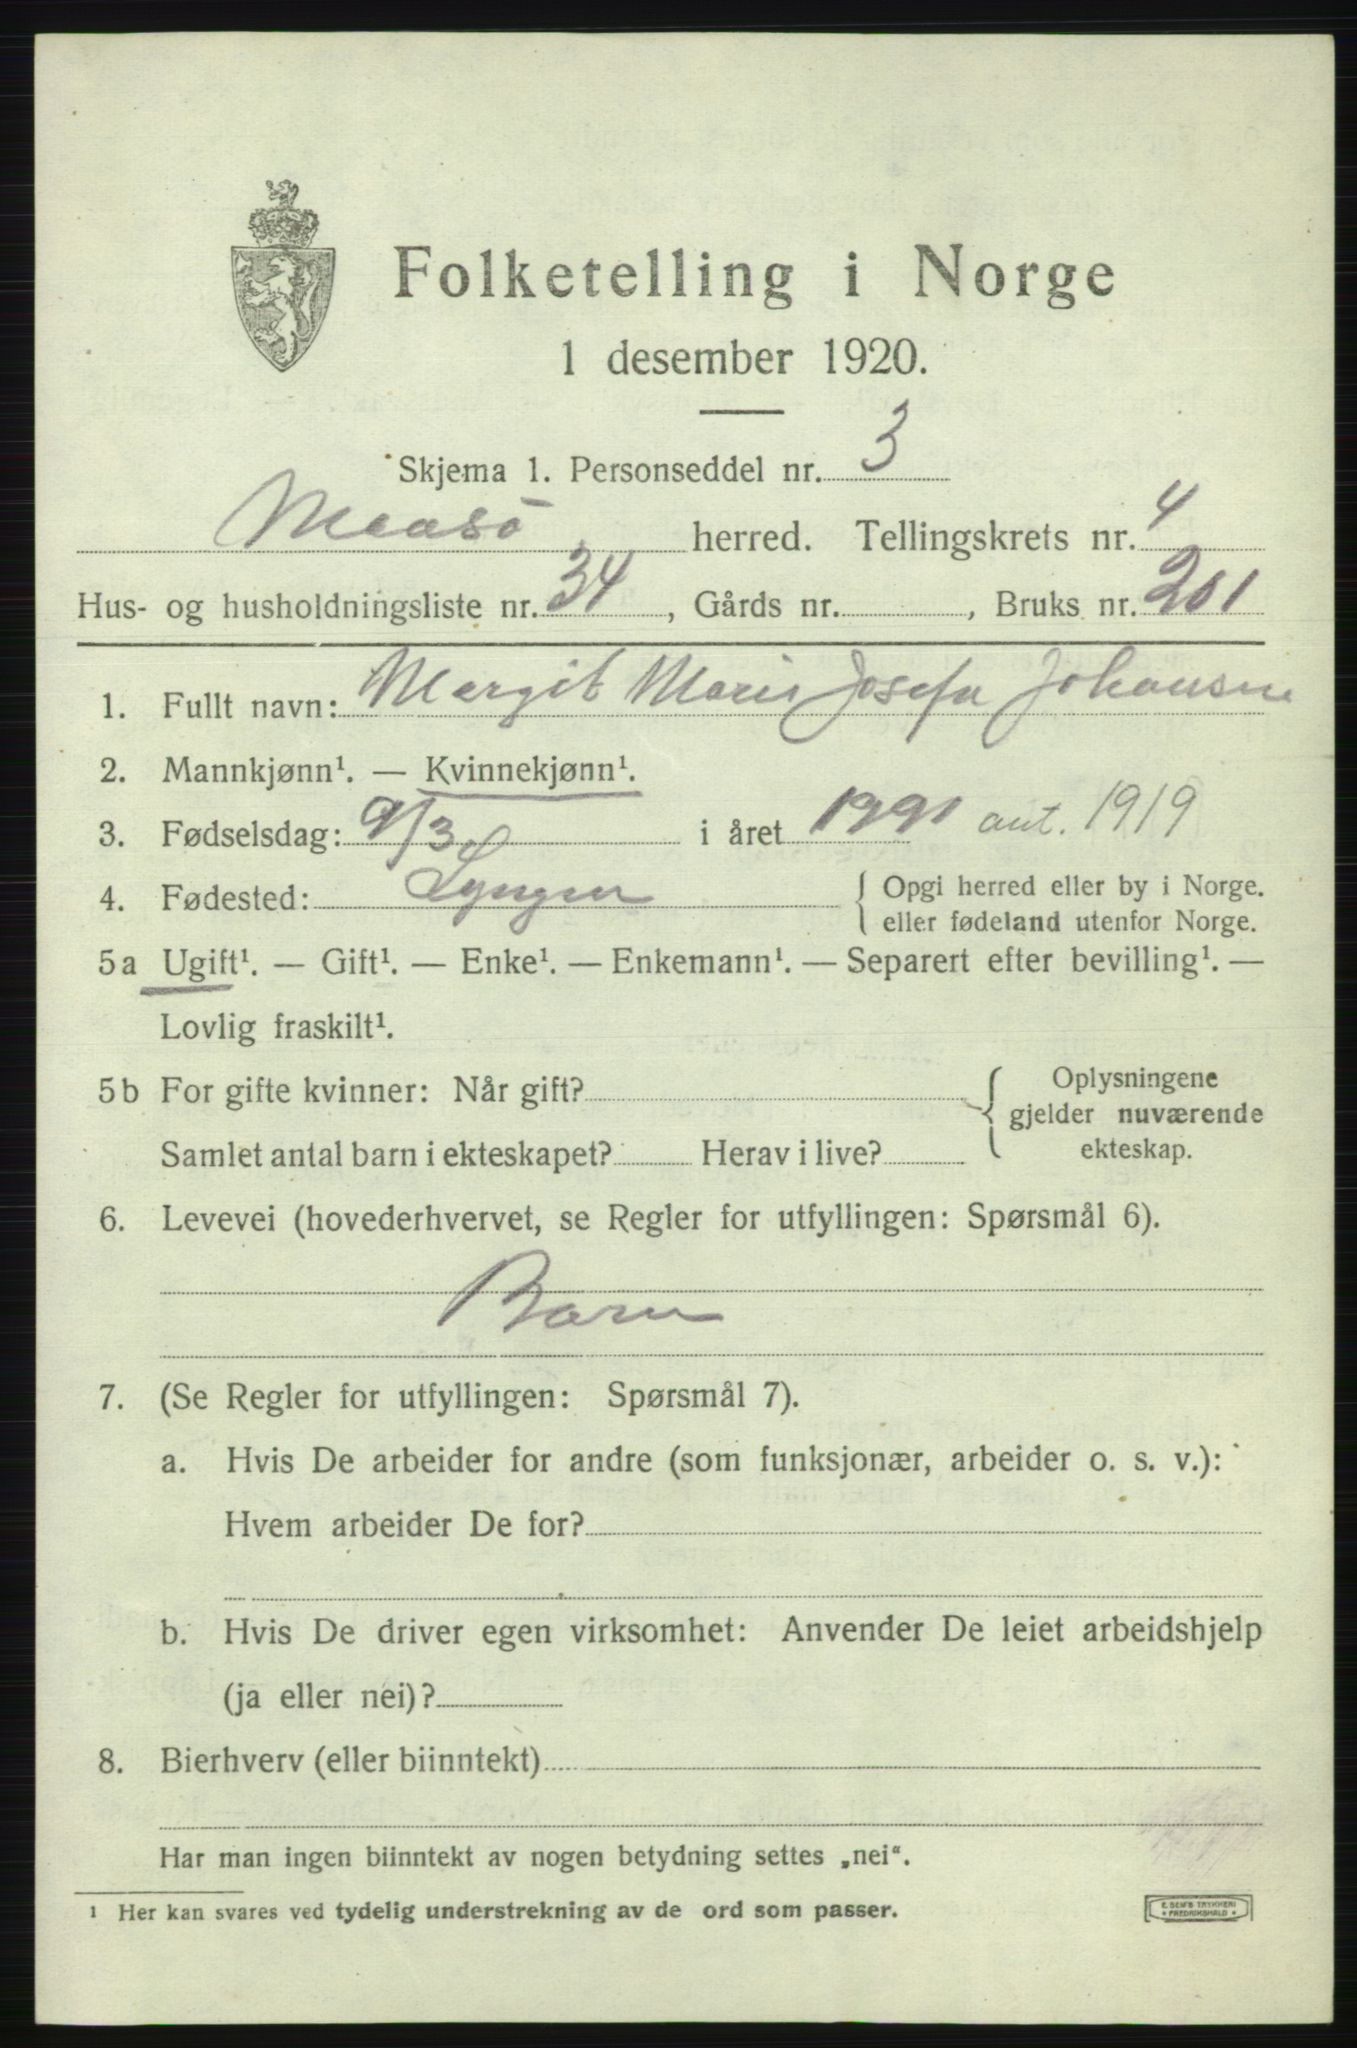 Folketelling i Norge
1 desember 1920.
Skjema 1. Personseddel nr. 3
Maasö herred. Tellingskrets nr. 4
Hus- og husholdningsliste nr. 34, Gårds nr. , Bruks nr. 201
1. Fullt navn: Margit Marie Josefa Johansen
2. Mannkjønn¹. — Kvinnekjønn¹.
3. Fødselsdag: 9/3 i året 1991 ant. 1919
4. Fødested: Lyngen { Opgi herred eller by i Norge.
eller fødeland utenfor Norge.
5a Ugift¹. — Gift¹. — Enke¹. — Enkemann¹. — Separert efter bevilling¹. —
Lovlig fraskilt¹.
5b For gifte kvinner: Når gift? { Oplysningene
gjelder nuværende
Samlet antal barn i ekteskapet? Herav i live? ekteskap.
6. Levevei (hovederhvervet, se Regler for utfyllingen: Spørsmål 6).
Barn
7. (Se Regler for utfyllingen: Spørsmål 7).
a. Hvis De arbeider for andre (som funksjonær, arbeider o. s. v.):
Hvem arbeider De for?
b. Hvis De driver egen virksomhet: Anvender De leiet arbeidshjelp
(ja eller nei)?
8. Bierhverv (eller biinntekt)
Har man ingen biinntekt av nogen betydning settes „nei“.
¹ Her kan svares ved tydelig understrekning av de ord som passer.
E. SEM'S TRYKKERI
FREDRIKSHALD